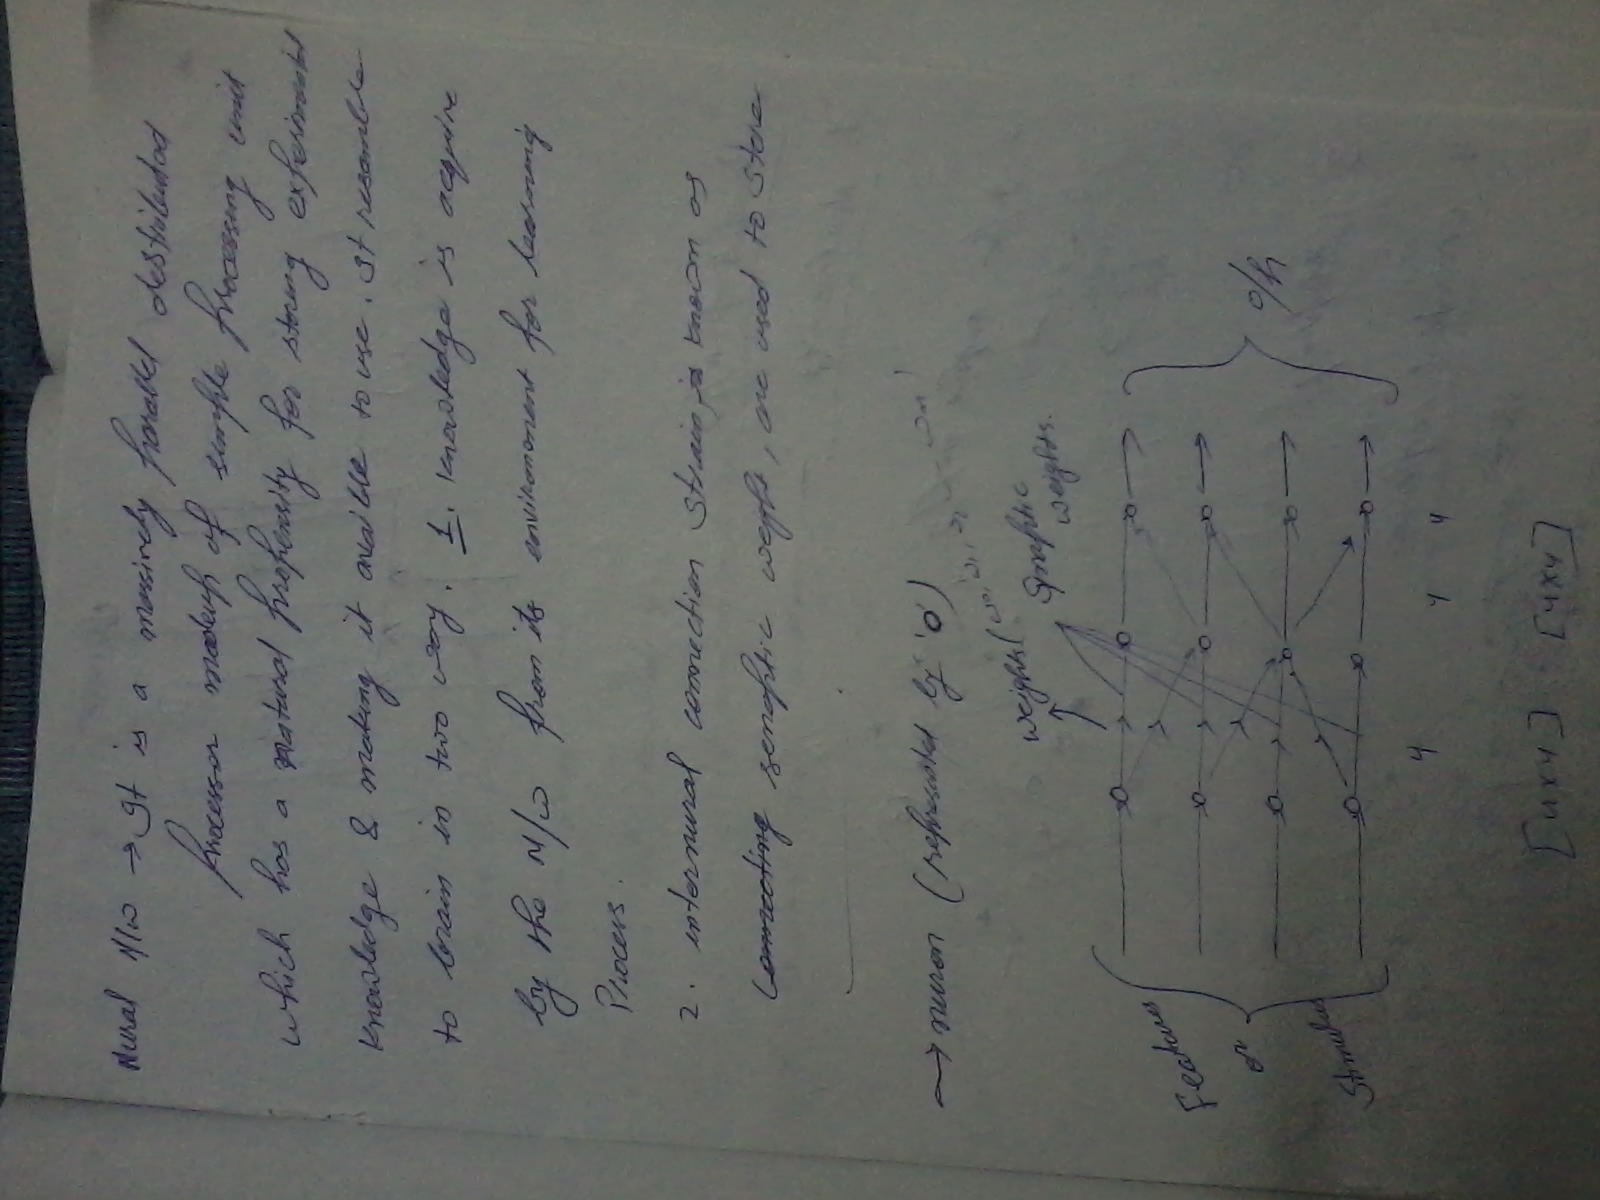 Nural N/w → It is a massively parallel destributed
processor madeup of simple processing unit
which has a natural propensity for storing experimental
knowledge & making it avaible to use. It resemble
to brain in two way. 1. knowledge is acquire
by the N/w from its environment for learning
Process.
2. internural connection strain, is known as
connecting senoptic weight, are used to store
→ nuron (represented by 'o')
weights(
Synaptic
weights.
Features
or
Stimulus
o/p
4 4 4
[4x4] [4x4]